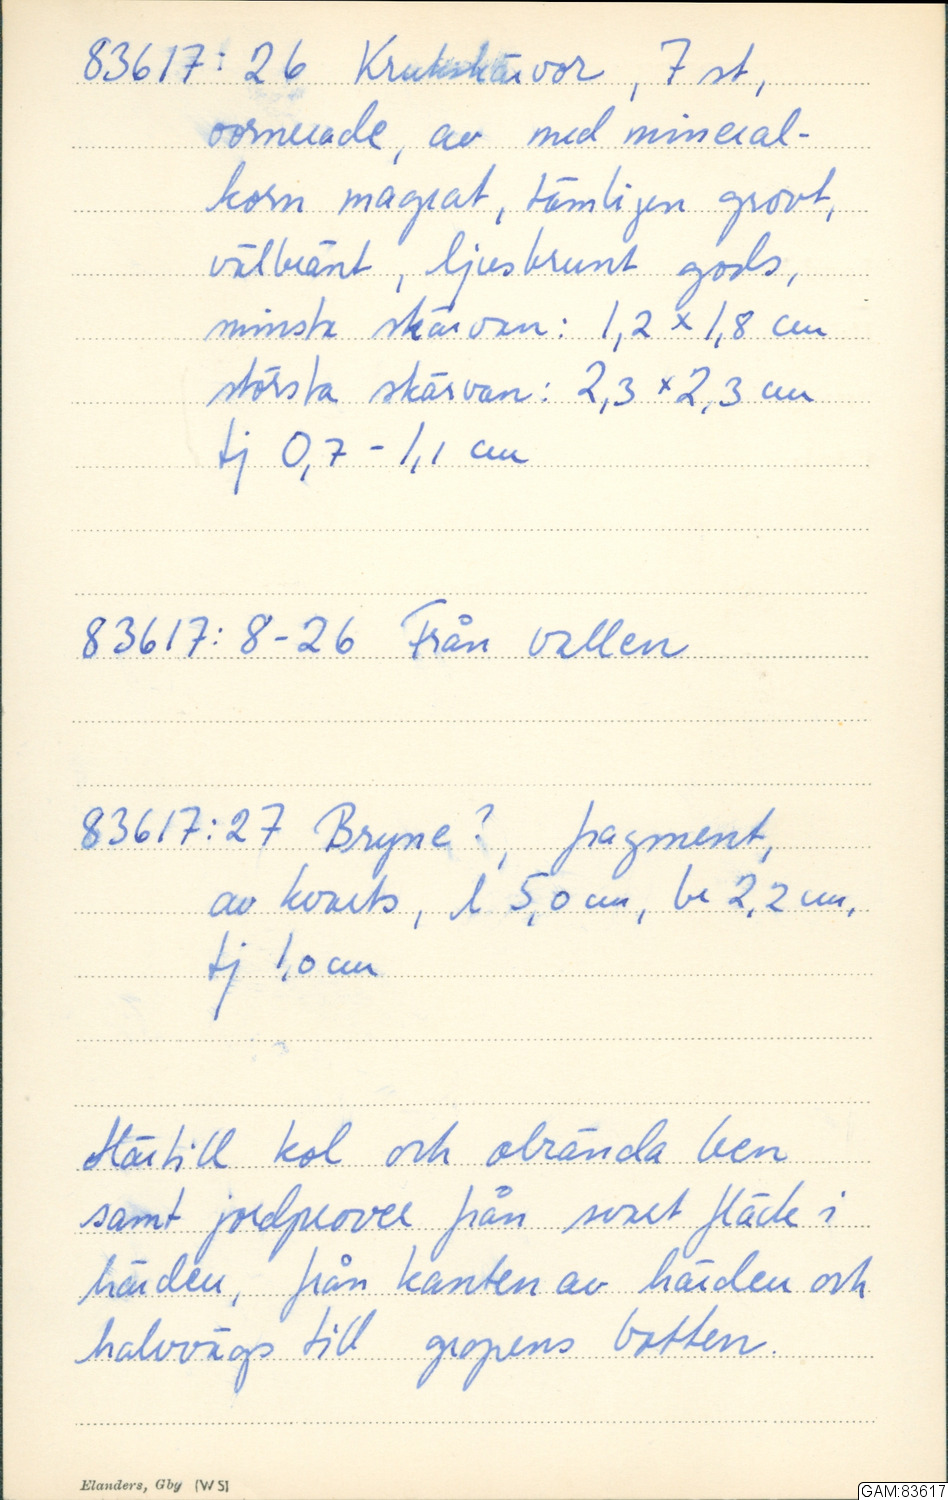 83617: 26 Krukskärvor, 7 st,
oornerade, av med mineral-
korn magrat, tämligen grovt,
välbränt, ljusbrunt gods,
minsta skärvan: 1,2 x 1,8 cm
största skärvan: 2,3 x 2,3 cm
tj 0,7 - 1,1 cm
83617: 8-26 Från vallen
83617:27 Bryne?, fragment,
av kvarts, l 5,0 cm, br 2,2 cm,
tj 1,0 cm
Härtill kol och obrända ben
samt jordprover från svart fläck i
härden, från kanten av härden och
halvvägs till gropens botten.
Elanders, Gby (W S)
GAM:83617